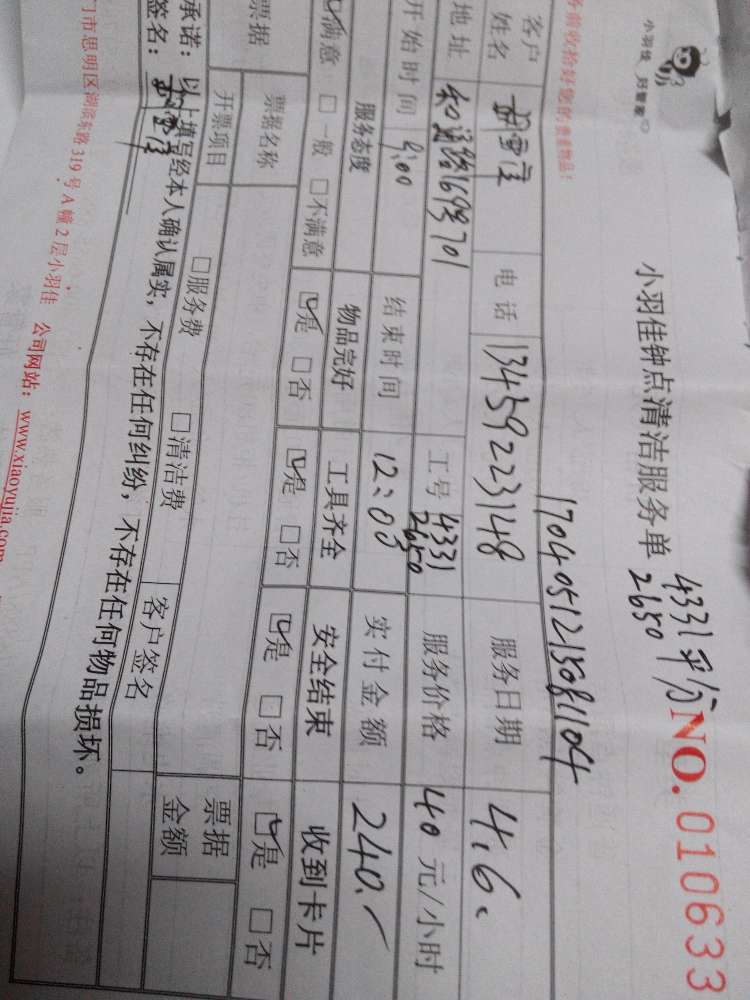 小羽佳 好管家
小羽佳钟点清洁服务单 4331平分 NO. 010633
2650
务前收拾好您的贵重物品! 1704051215081104
客户姓名 电话 13459223148 服务日期 4.6.
地址 和通路169号701 工号 4331 2650 服务价格 40 元/小时
开始时间 9:00 结束时间 12:03 实付金额 240.
服务态度 物品完好 工具齐全 安全结束 收到卡片
☑满意 □一般 □不满意 ☑是 □否 ☑是 □否 ☑是 □否 ☑是 □否
票据 票据名称 票据金额
开票项目 □服务费 □清洁费 客户签名
承诺：以上填写经本人确认属实，不存在任何纠纷，不存在任何物品损坏。
签名：
门市思明区湖滨东路319号A幢2层小羽佳 公司网站：www.xiaoyujia.com